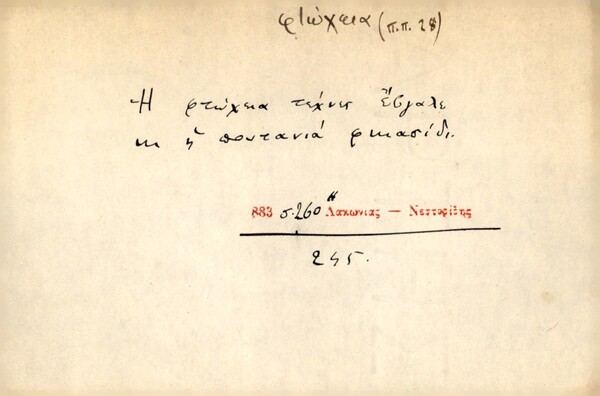 φτώχεια (π.π. 28)
Ἡ φτώχεια τέχνες ἔβγαλε
κι ἡ πουτανιά φκιασίδι.
883 σ. 260 Λακωνίας — Νεστορίδης
245.